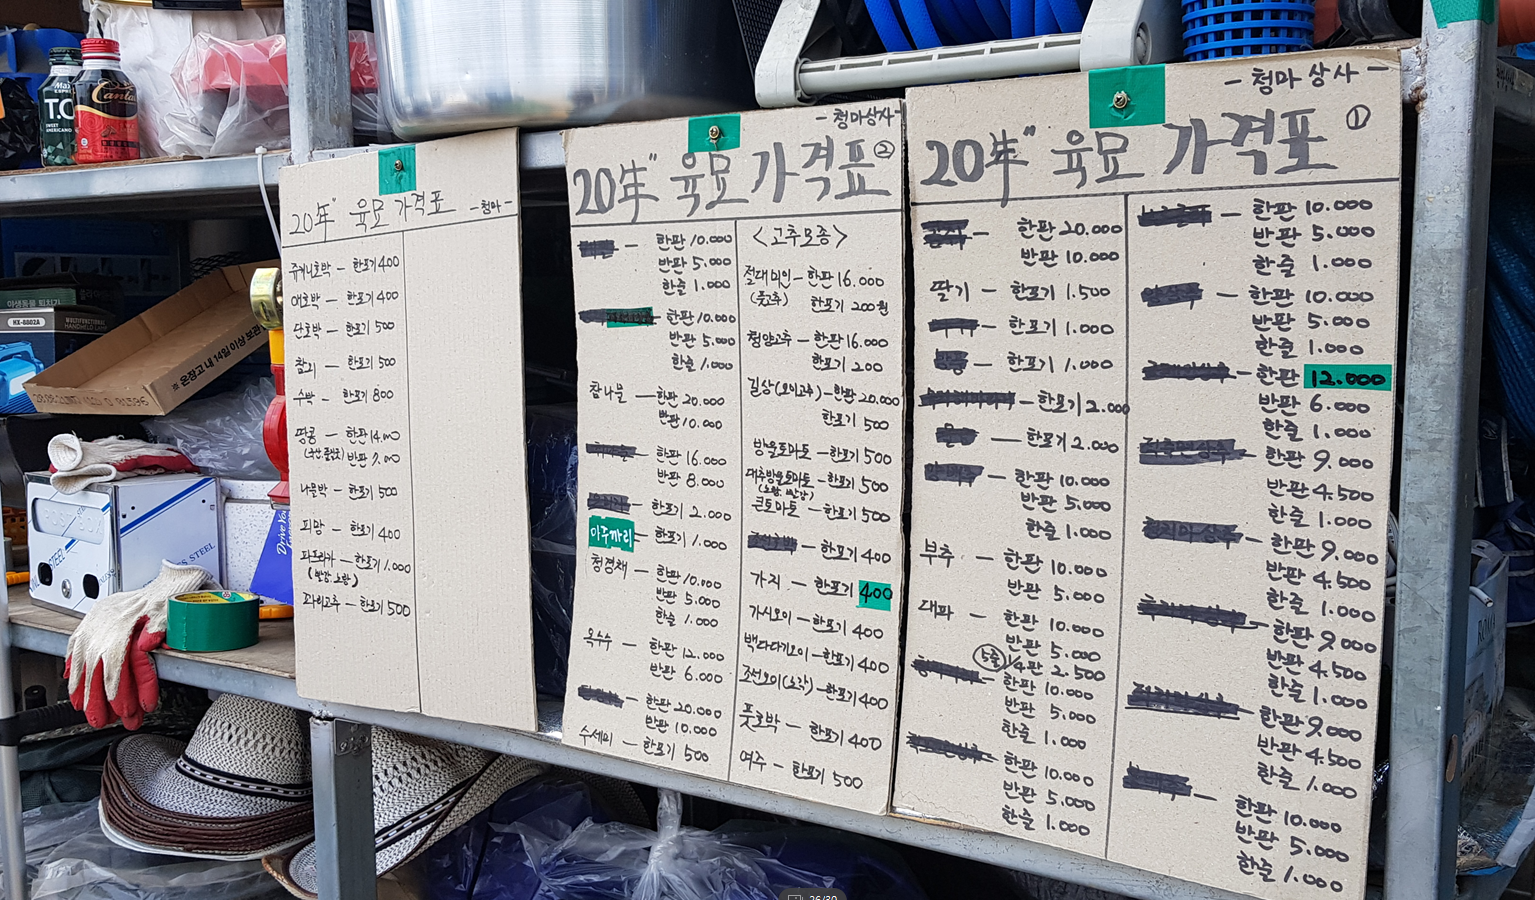 20年" 육묘 가격표 -청마-
쥬키니호박 - 한포기 400
애호박 - 한포기 400
단호박 - 한포기 500
참외 - 한포기 500
수박 - 한포기 800
땅콩 - 한판 14.000
반판 7.000
나물박 - 한포기 500
피망 - 한포기 400
파프리카 - 한포기 1.000
(빨강, 노랑)
꽈리고추 - 한포기 500
-청마상사-
20年" 육묘 가격표 ②
- 한판 10.000
반판 5.000
한줄 1.000
- 한판 10.000
반판 5.000
한줄 1.000
참나물 - 한판 20.000
반판 10.000
- 한판 16.000
반판 8.000
- 한포기 2.000
아주까리 - 한포기 1.000
청경채 - 한판 10.000
반판 5.000
한줄 1.000
옥수수 - 한판 12.000
반판 6.000
- 한판 20.000
반판 10.000
수세미 - 한포기 500
<고추모종>
절대미인 - 한판 16.000
(풋고추) 한포기 200원
청양고추 - 한판 16.000
한포기 200
길상(오이고추) - 한판 20.000
한포기 500
방울토마토 - 한포기 500
대추방울토마토 - 한포기 500
(노랑, 빨강)
큰토마토 - 한포기 500
- 한포기 400
가지 - 한포기 400
가시오이 - 한포기 400
백다다기오이 - 한포기 400
조선오이(노각) - 한포기 400
풋호박 - 한포기 400
여주 - 한포기 500
- 청마상사 -
20年" 육묘 가격표 ①
- 한판 20.000
반판 10.000
딸기 - 한포기 1.500
- 한포기 1.000
- 한포기 1.000
- 한포기 2.000
- 한포기 2.000
- 한판 10.000
반판 5.000
한줄 1.000
부추 - 한판 10.000
반판 5.000
대파 - 한판 10.000
반판 5.000
5줄 1/4판 2.500
- 한판 10.000
반판 5.000
한줄 1.000
- 한판 10.000
반판 5.000
한줄 1.000
- 한판 10.000
반판 5.000
한줄 1.000
- 한판 10.000
반판 5.000
한줄 1.000
- 한판 12.000
반판 6.000
한줄 1.000
- 한판 9.000
반판 4.500
한줄 1.000
- 한판 9.000
반판 4.500
한줄 1.000
- 한판 9.000
반판 4.500
한줄 1.000
- 한판 9.000
반판 4.500
한줄 1.000
- 한판 10.000
반판 5.000
한줄 1.000
T.O
SWEET
AMERICANO
Canta
HX-8802A
온장고 내 14일 이상 보관
STEEL